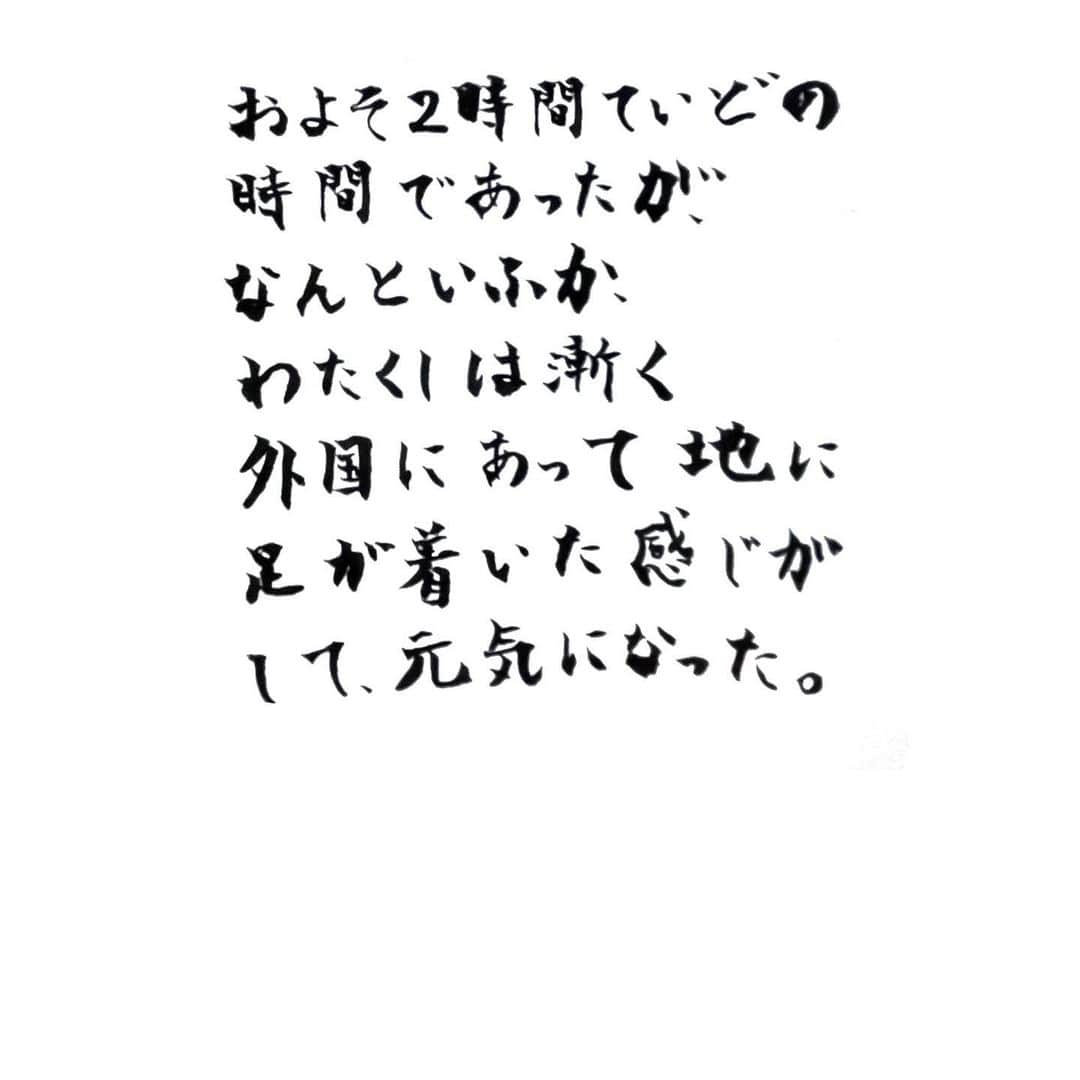 およそ2時間ていどの
時間であったが、
なんといふか、
わたくしは漸く
外国にあって地に
足が着いた感じが
して、元気になった。